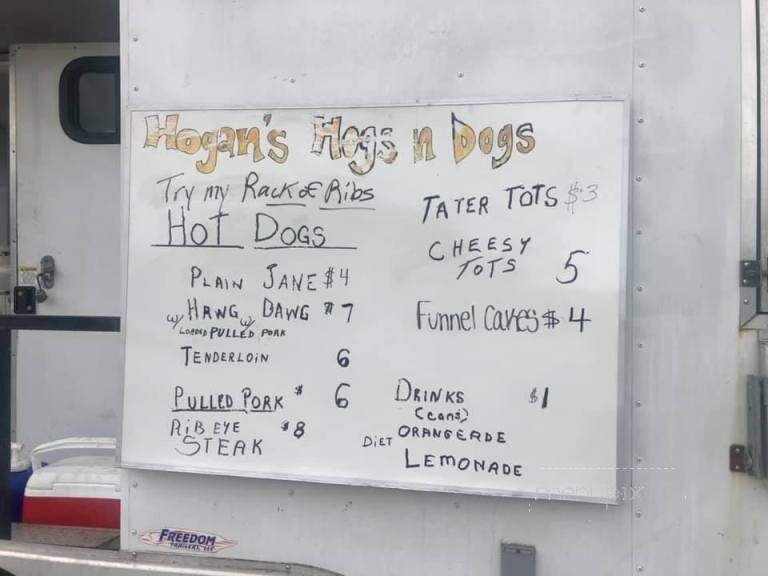 Hogan's Hogs n Dogs
Try my Rack of Ribs
HOT DOGS
PLAIN JANE $4
w/ HAWG w/ DAWG $7
LOADED PULLED PORK
TENDERLOIN 6
PULLED PORK $ 6
RIB EYE $8
STEAK
TATER TOTS $3
CHEESY
TOTS 5
Funnel Cakes $4
DRINKS $1
(cans)
ORANGEADE
DIET
LEMONADE
FREEDOM
TRAILERS, LLC